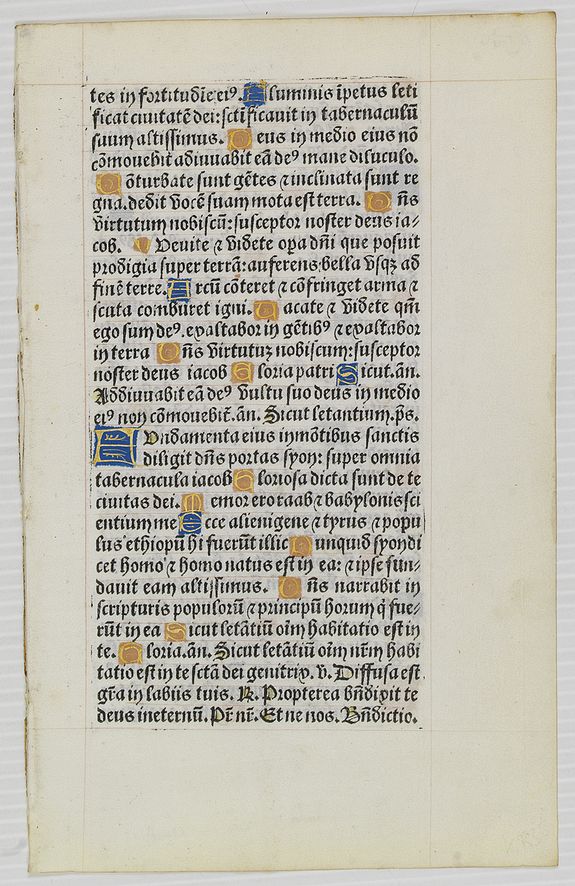 tes in fortitudīe ei⁹. Fluminis īpetus leti
ficat ciuitatē dei: sctīficauit in tabernaculū
suum altissimus. Deus in medio eius nō
cōmouebit̄ adiuuabit eā de⁹ mane diluculo.
Cōturbate sunt gētes ⁊ inclinata sunt re
gna. dedit vocē suam mota est terra. Dn̄s
virtutum nobiscū: susceptor noster deus ia⸗
cob. Venite ⁊ videte oꝑa dn̄i que posuit
prodigia super terrā: auferens bella vsqꝫ ad
finē terre. Arcū cōteret ⁊ cōfringet arma ⁊
scuta comburet igni. Vacate ⁊ videte qm̄
ego sum de⁹. exaltabor in gētib⁹ ⁊ exaltabor
in terra Dn̄s virtutuꝫ nobiscum: susceptor
noster deus iacob Gloria patri Sicut. an.
Addiuuabit eā de⁹ vultu suo deus in medio
ei⁹ non cōmouebit̄. an. Sicut letantium. ps.
Fvndamenta eius in mōtibus sanctis
diligit dn̄s portas syon: super omnia
tabernacula iacob Gloriosa dicta sunt de te
ciuitas dei. Memor ero raab ⁊ babylonis sci
entium me Ecce alienigene ⁊ tyrus ⁊ popu
lus ethiopū hi fuerūt illic Nunquid syon di
cet homo ⁊ homo natus est in ea: ⁊ ipse fun⸗
dauit eam altissimus. Dn̄s narrabit in
scripturis populorū ⁊ principū horum q̄ fue⸗
rūt in ea Sicut letātiū oīm habitatio est in
te. Gloria. an. Sicut letātiū oīm nr̄m habi
tatio est in te sctā dei genitrix. v. Diffusa est
gr̄a in labiis tuis. ℟. Propterea bn̄dixit te
deus in eternū. Pr̄ nr̄. Et ne nos. Bn̄dictio.